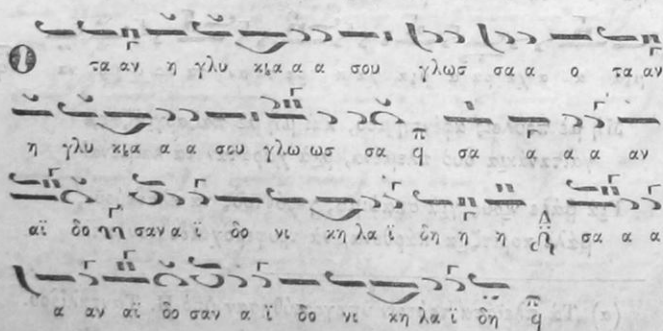 Ο τα αν η γλυ κια α α σου γλωσ σα α ο τα αν
η γλυ κια α α σου γλω ωσ σα π q σα α α α αν
αϊ δο ηη σαν α ϊ δο νι κη λα ϊ δη η η σα α α
α αν αϊ δο σαν α ι δο νι κη λα ϊ δη π q